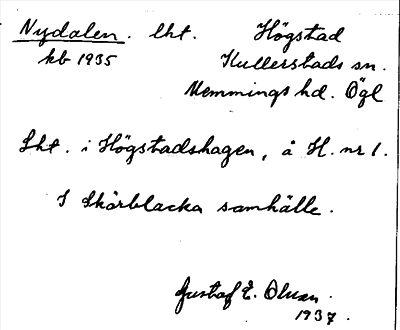 Nydalen. lht. Högstad
kb 1935 Kullerstads sn.
Memmings hd. Ögl
Lht. i Högstadshagen, å H. nr 1.
I Skärblacka samhälle.
Gustaf E. Olsson.
1937.